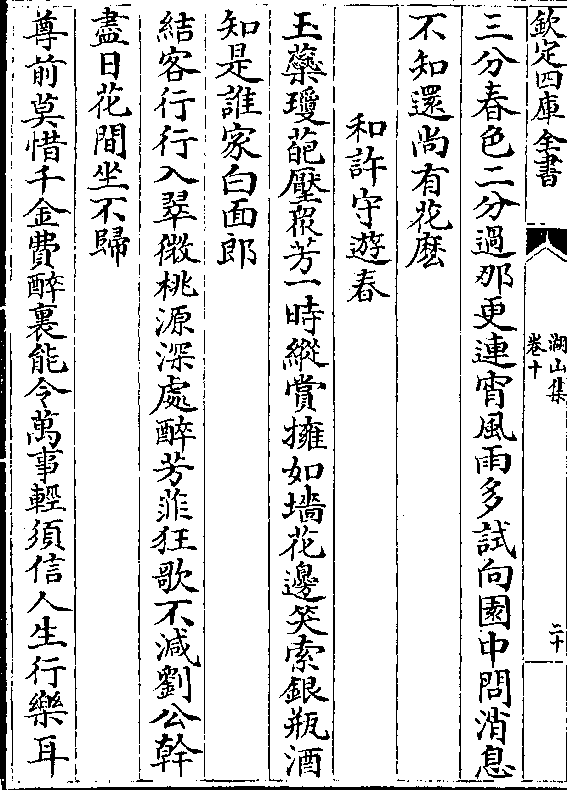 欽定四庫全書
湖山集
卷十
二十
三分春色二分過那更連宵風雨多試向園中問消息
不知還尚有花麽
和許守遊春
玉蘂瓊葩壓衆芳一時縱賞擁如墻花邊笑索銀瓶酒
知是誰家白面郎
結客行行入翠微桃源深處醉芳菲狂歌不減劉公幹
盡日花間坐不歸
尊前莫惜千金費醉裏能令萬事輕須信人生行樂耳